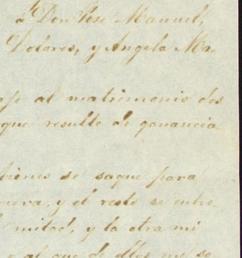 á Don Jose Manuel,
Dolores, y Angela Ma.
al matrimonio dos
que resulte de ganancia
bienes se saque para
y el resto se entre
mitad, y la otra mi